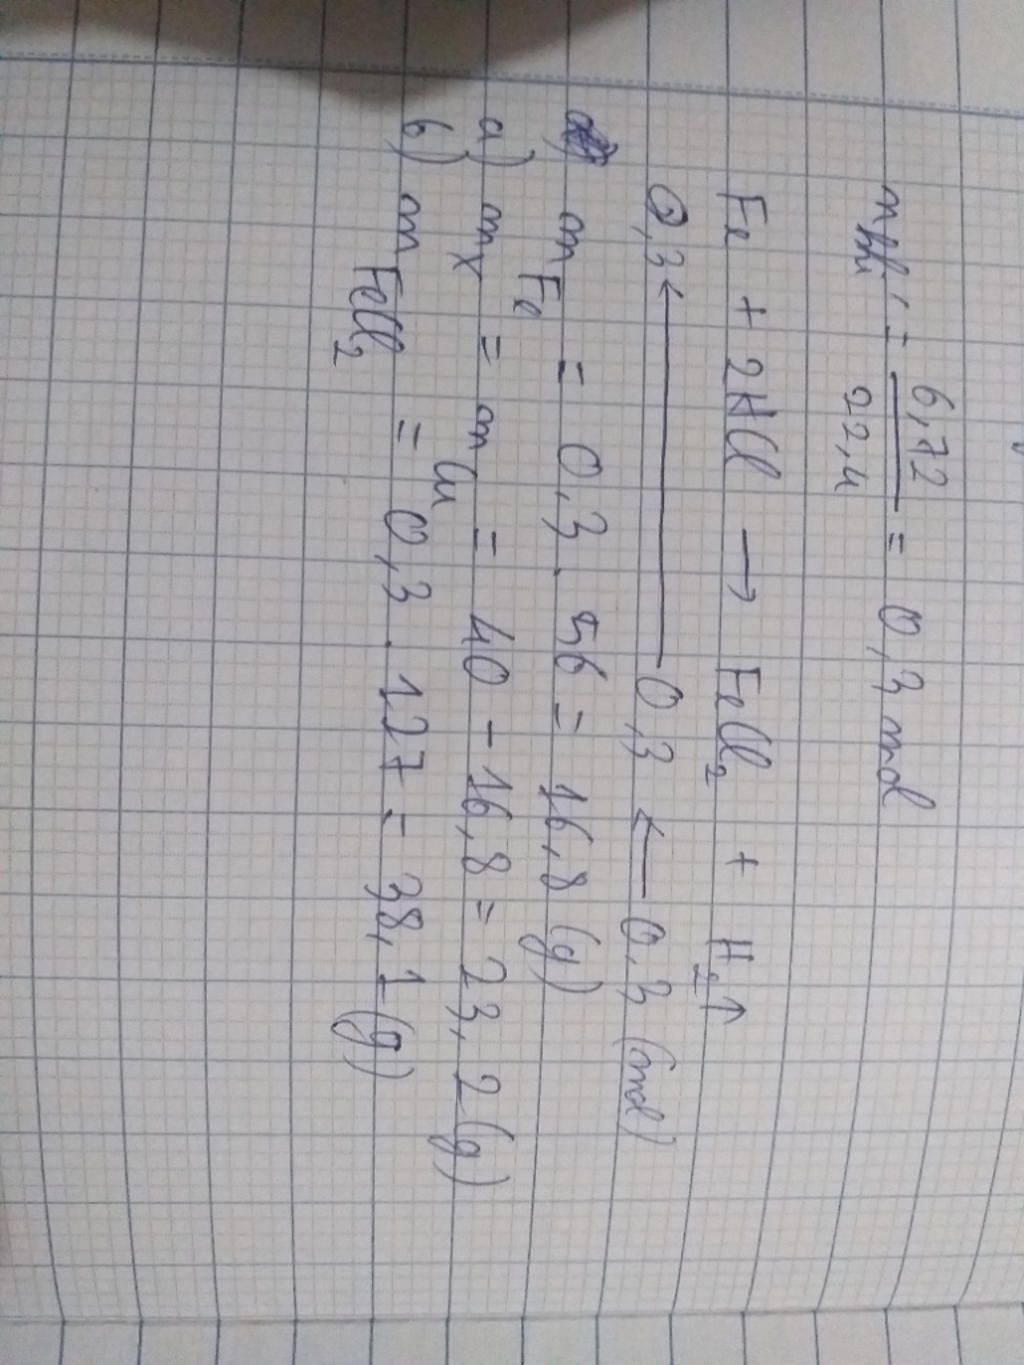 n khí = 6,72 / 22,4 = 0,3 mol
Fe + 2HCl → FeCl₂ + H₂↑
0,3 ← 0,3 ← 0,3 (mol)
m Fe = 0,3 . 56 = 16,8 (g)
a) m X = m Cu = 40 - 16,8 = 23,2 (g)
b) m FeCl₂ = 0,3 . 127 = 38,1 (g)